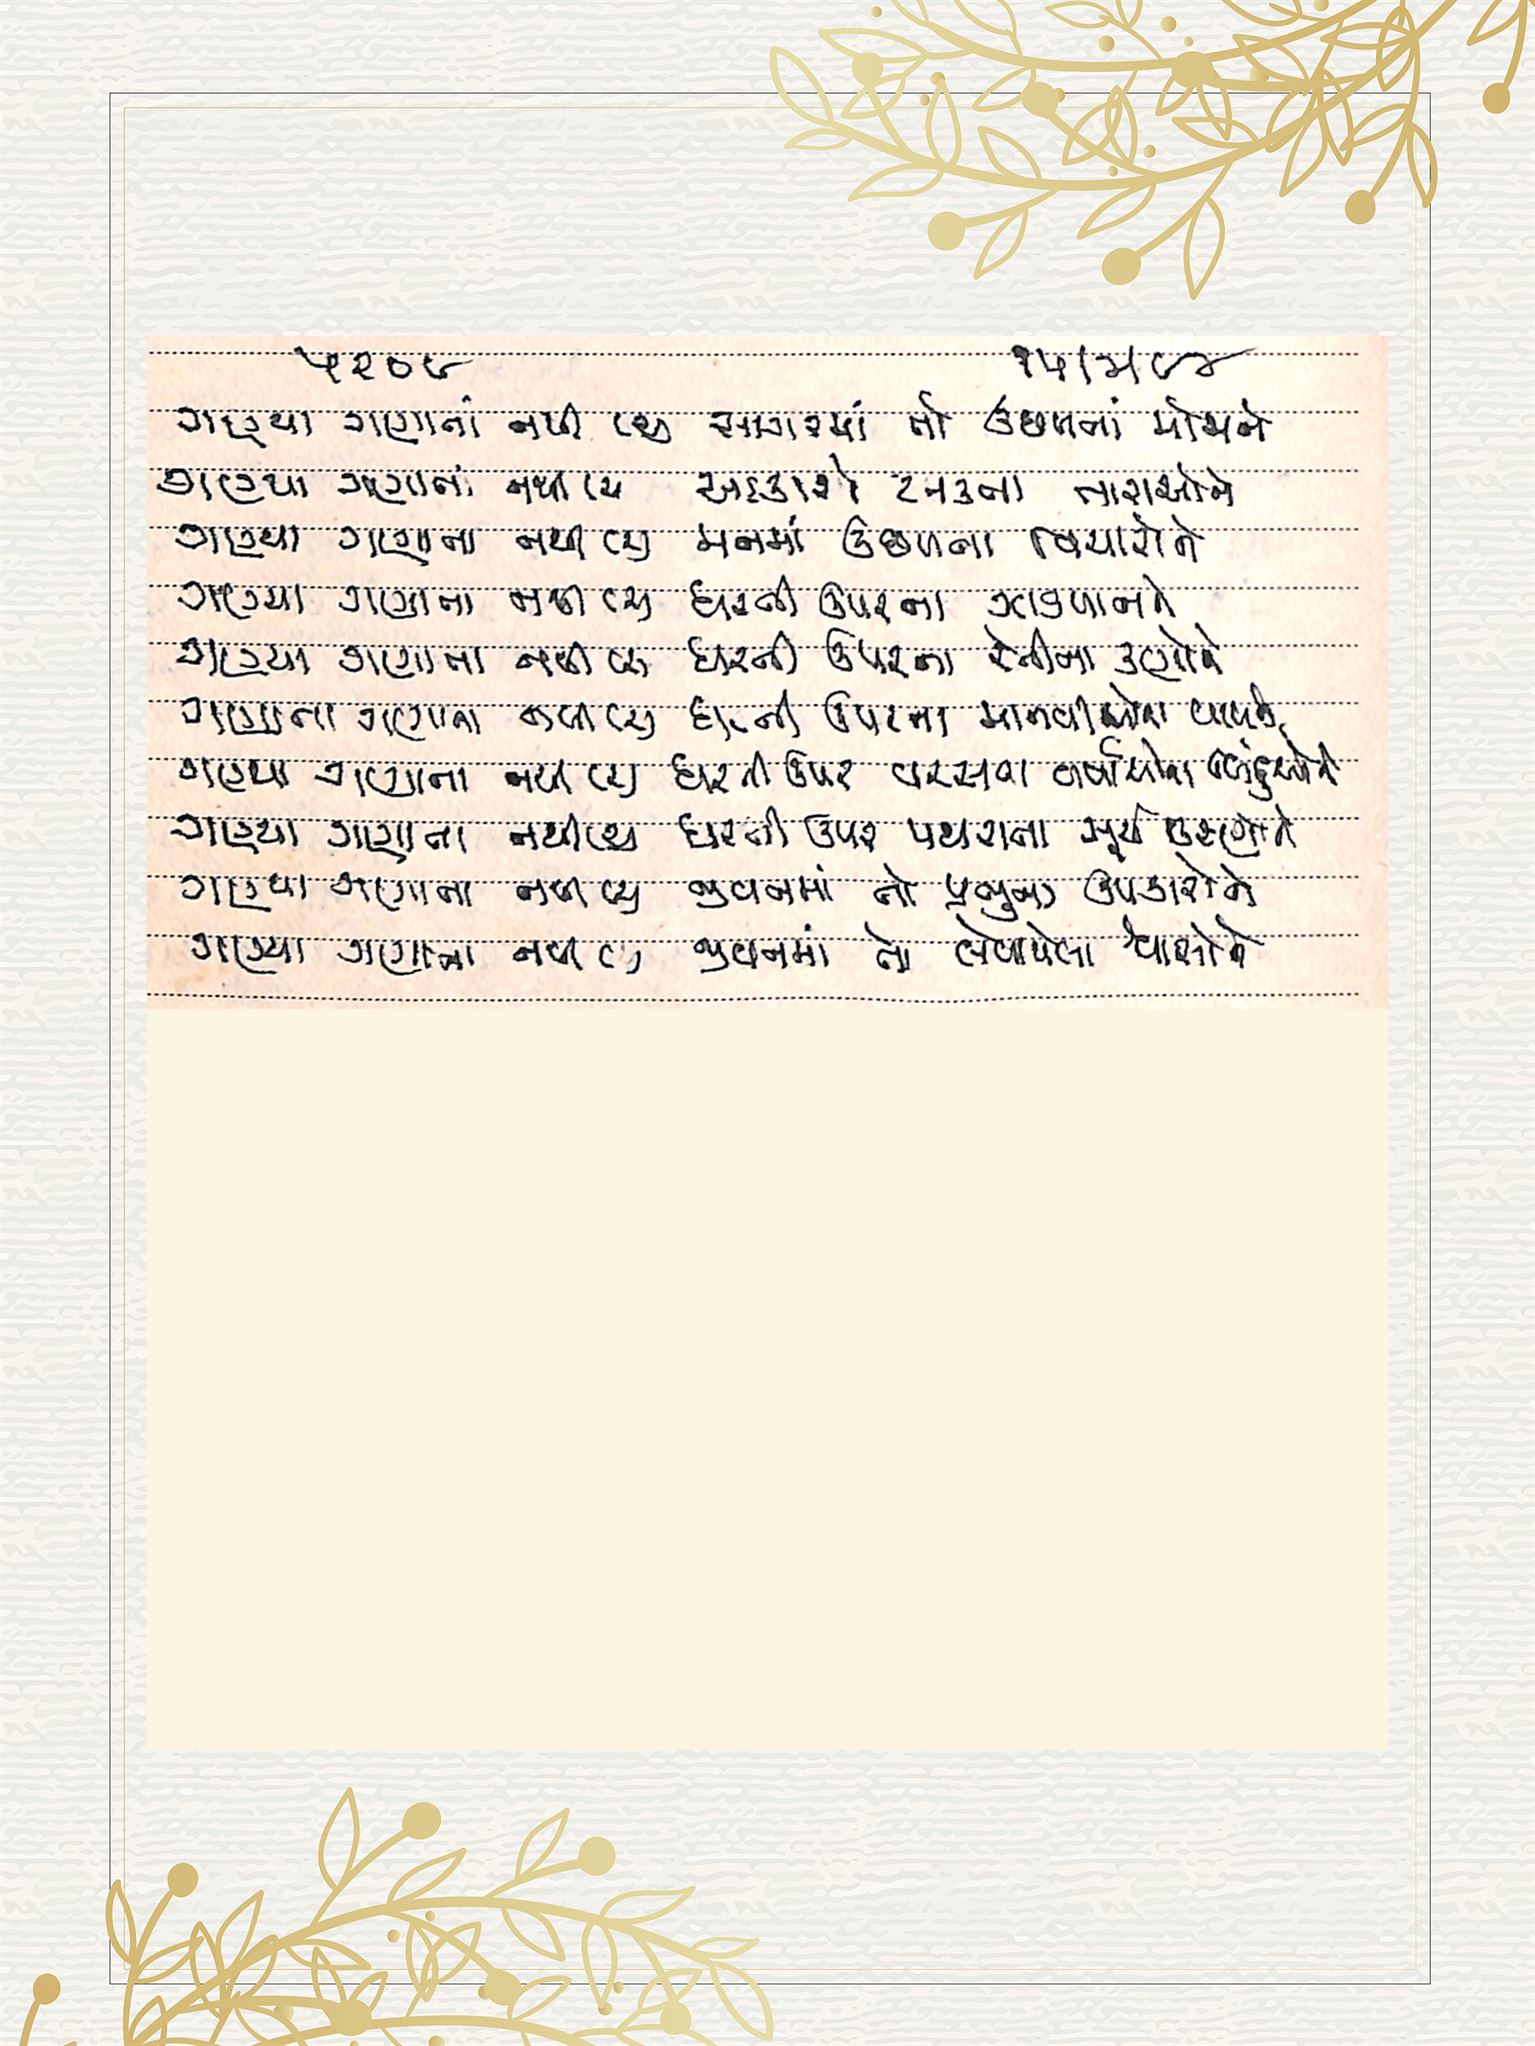 ૫૨૦૯ ૧૫/૩/૯૪
ગણ્યા ગણાતાં નથી જ્યાં સાગરમાં તો ઉછળતાં મોજાને
ગણ્યા ગણાતાં નથી જ્યાં આકાશે ટમકતા તારાઓને
ગણ્યા ગણાતા નથી જ્યાં મનમાં ઉછળતા વિચારોને
ગણ્યા ગણાતા નથી જ્યાં ધરતી ઉપરના ઝાકળ
ગણ્યા ગણાતા નથી જ્યાં ધરતી ઉપરના રેતીના કણોને
ગણ્યા ગણાતા નથી જ્યાં ધરતી ઉપરના માનવીઓના
ગણ્યા ગણાતા નથી જ્યાં ધરતી ઉપર વરસતા વર્ષાઓના બિંદુઓને
ગણ્યા ગણાતા નથી જ્યાં ધરતી ઉપર પથરાતા સૂર્ય કિરણોને
ગણ્યા ગણાતા નથી જ્યાં જીવનમાં તો પ્રભુના ઉપકારોને
ગણ્યા ગણાતા નથી જ્યાં જીવનમાં તો લેવાયેલા શ્વાસોને